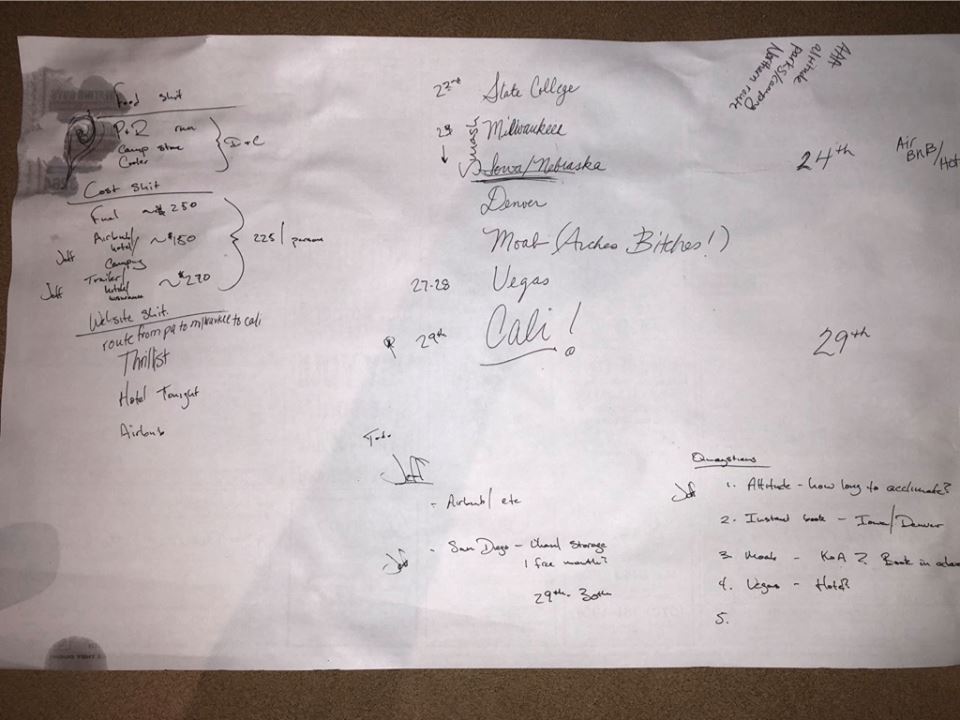 Food shit
P+D run
Camp stove
Cooler
D+C
Cost shit
Fuel ~$250
Airbnb/
hotel/
Camping
~$150
Jeff
Jeff
Trailer/
hitch/
insurance
~$270
225/person
Website shit.
route from pa to milwaukee to cali
Thrillist
Hotel Tonight
Airbnb
22nd State College
24 Milwaukee
Iowa/Nebraska
Denver
Moab (Arches Bitches!)
27-28 Vegas
29th Cali!
AAA
altitude
parks/camping
Northern route
24th
Air
BNB/
Hot
29th
Todo
Jeff
- Airbnb/etc
Jeff
- San Diego - Uhaul Storage
1 free month?
29th-30th
Quaystions
Jeff
1. Altitude - how long to acclimate?
2. Instant book - Iowa/Denver
3. Moab - KoA? Book in adva
4. Vegas - Hotel?
5.